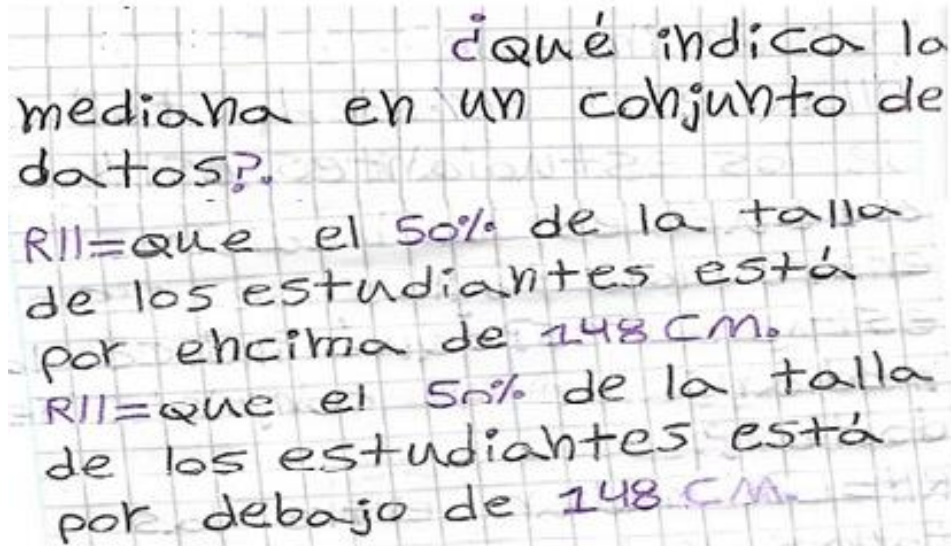 ¿qué indica la
mediana en un conjunto de
datos?.
R//=que el 50% de la talla
de los estudiantes está
por encima de 148 CM.
R//=que el 50% de la talla
de los estudiantes está
por debajo de 148 CM.